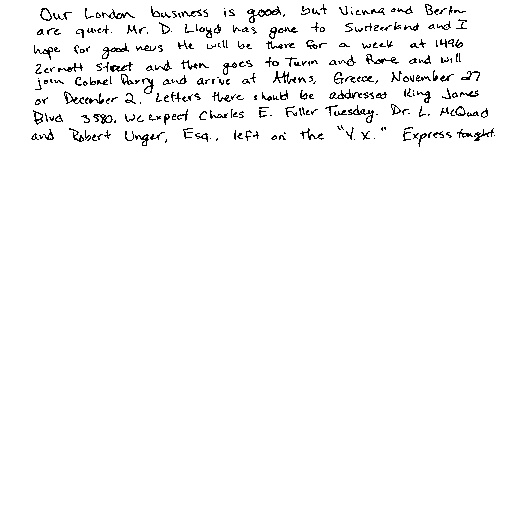 Our London business is good, but Vienna and Berlin
are quiet. Mr. D. Lloyd has gone to Switzerland and I
hope for good news. He will be there for a week at 1496
Zermott Street and then goes to Turin and Rome and will
join Colonel Parry and arrive at Athens, Greece, November 27
or December 2. Letters there should be addressed King James
Blvd 3580. We expect Charles E. Fuller Tuesday. Dr. L. McQuad
and Robert Unger, Esq., left on the "Y.X." Express tonight.